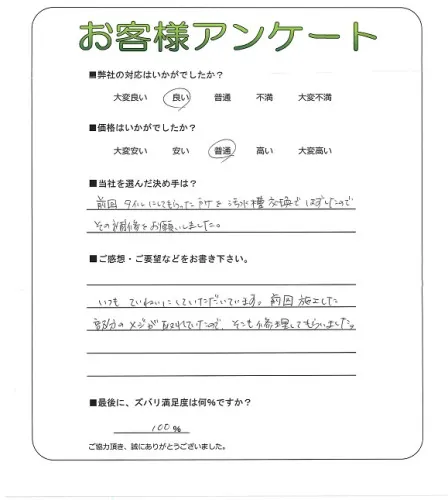 お客様アンケート
■弊社の対応はいかがでしたか？
大変良い 良い 普通 不満 大変不満
■価格はいかがでしたか？
大変安い 安い 普通 高い 大変高い
■当社を選んだ決め手は？
前回 タイルにしてもらった所を 汚水槽 交換で はずしたので
その補修をお願いしました。
■ご感想・ご要望などをお書き下さい。
いつも ていねいにしていただいています。前回 施工した
部分の メジが 取れていたので、そこも修理してもらいました。
■最後に、ズバリ満足度は何%ですか？
100 %
ご協力頂き、誠にありがとうございました。